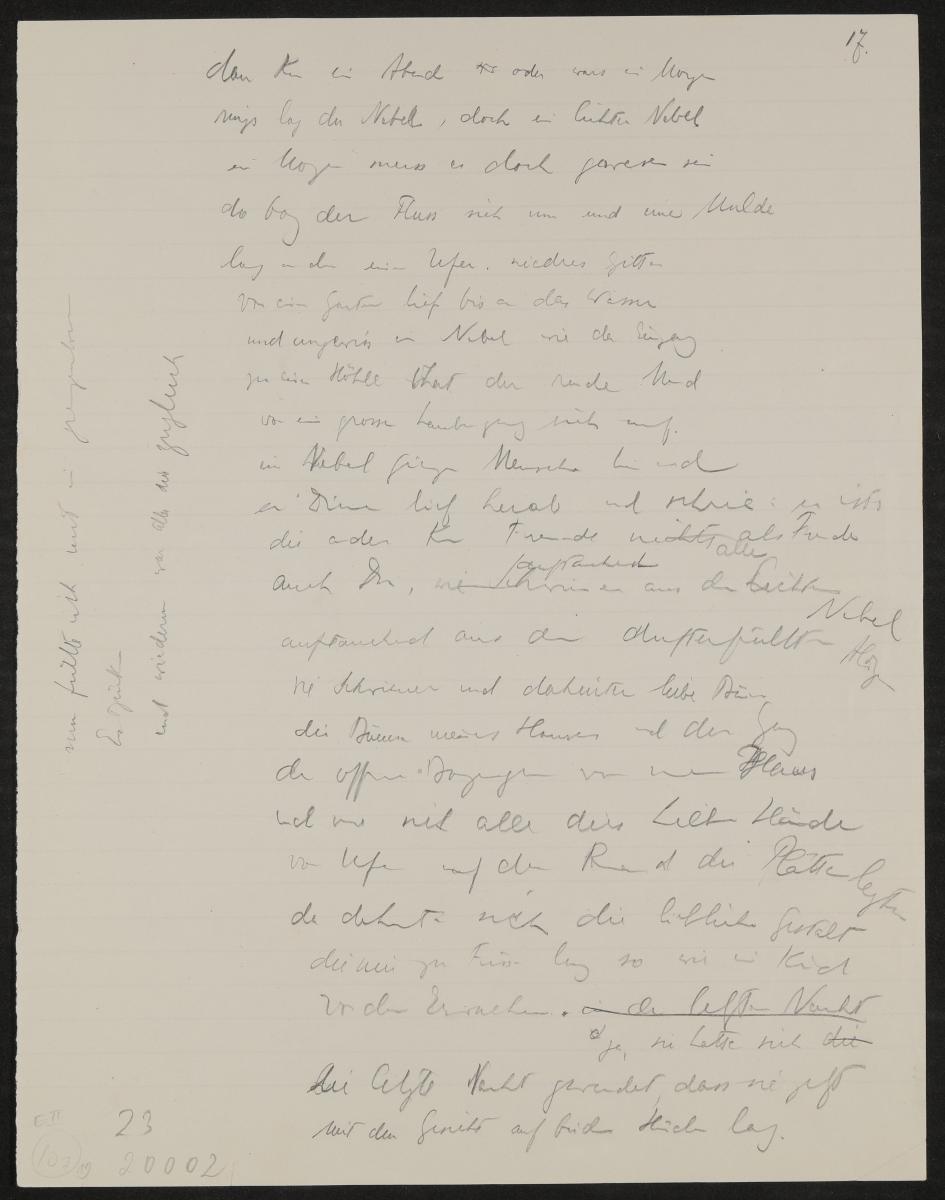 17.
dann kam ein Abend oder wars ein Morgen
rings lag der Nebel, doch ein lichter Nebel
ein Morgen muss es doch gewesen sein
da bog der Fluss sich um und eine Mulde
lag an dem einen Ufer. niedres Gitter
von einem Garten lief bis an das Wasser
und ungewiss im Nebel wie der Eingang
zu einer Höhle that der runde Mund
von einem grossen Laubengang sich auf.
im Nebel giengen Menschen hin und
ein Diener lief herab und schrie: er ists
die andern Fremde nichts als Fremde
alle
auftauchend
auch Du, aus dem lichten
Nebel
auftauchend aus dem dufterfüllten
sie schrieen und dahinter liebe Bäume
die Bäume meines Hauses und der Gang
der offne Bogengang von meinem Haus
und wie sich alle diese lieben Hände
vom Ufer auf den Rand die Platten legten
da dehnte sich die liebliche Gestalt
die mir zu Füssen lag so wie ein Kind
vor dem Erwachen. in der letzten Nacht
ja, sie hatte sich die
die letzte Nacht gewendet, dass sie jetzt
mit dem Gesicht auf beiden Händen lag.
nun fühlte ich und ein
und wiederum war alles dies zugleich
E II
23
20002